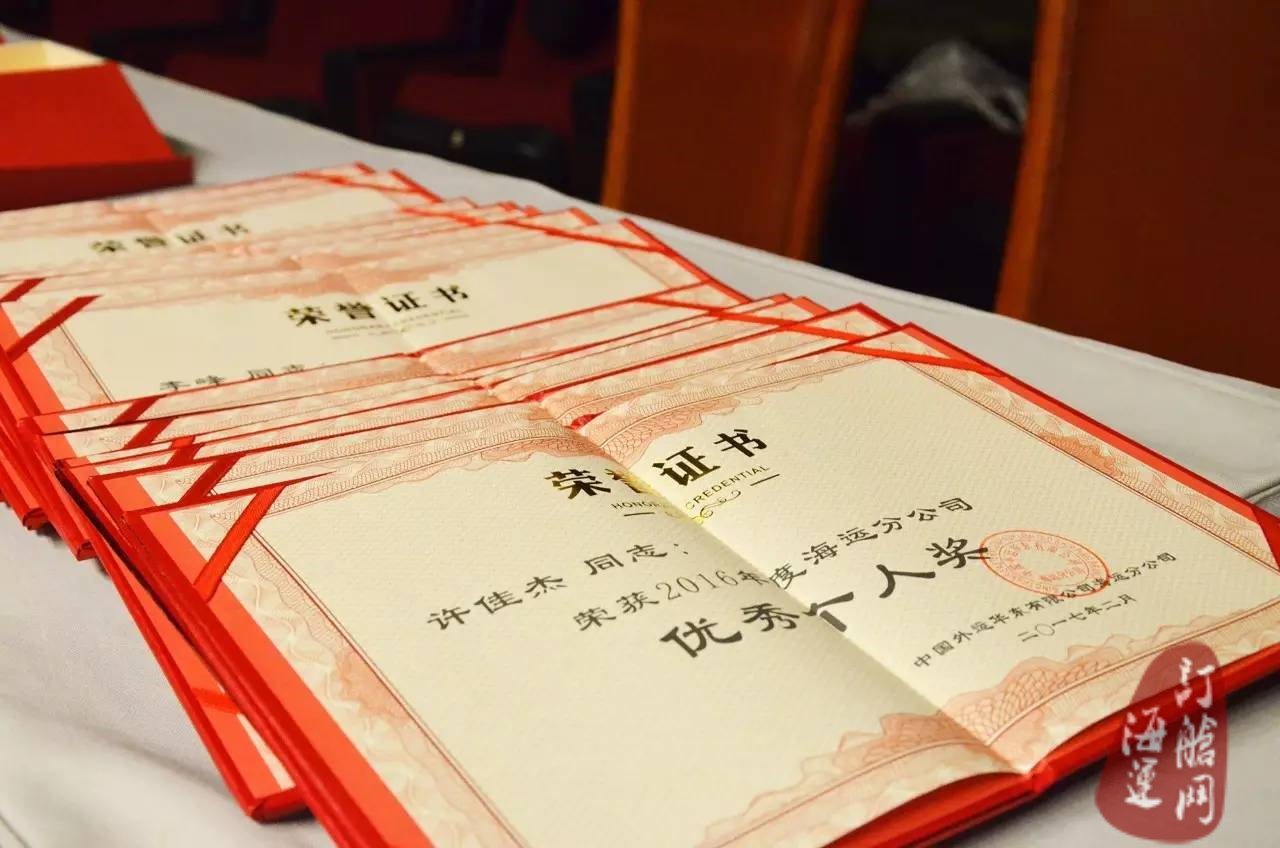 荣誉证书
荣誉证书
李峰 同志
荣誉证书
HONOR CREDENTIAL
许佳杰 同志：
荣获2016年度海运分公司
优秀个人奖
中国外运华东有限公司海运分公司
二〇一七年二月
訂舱网
海運